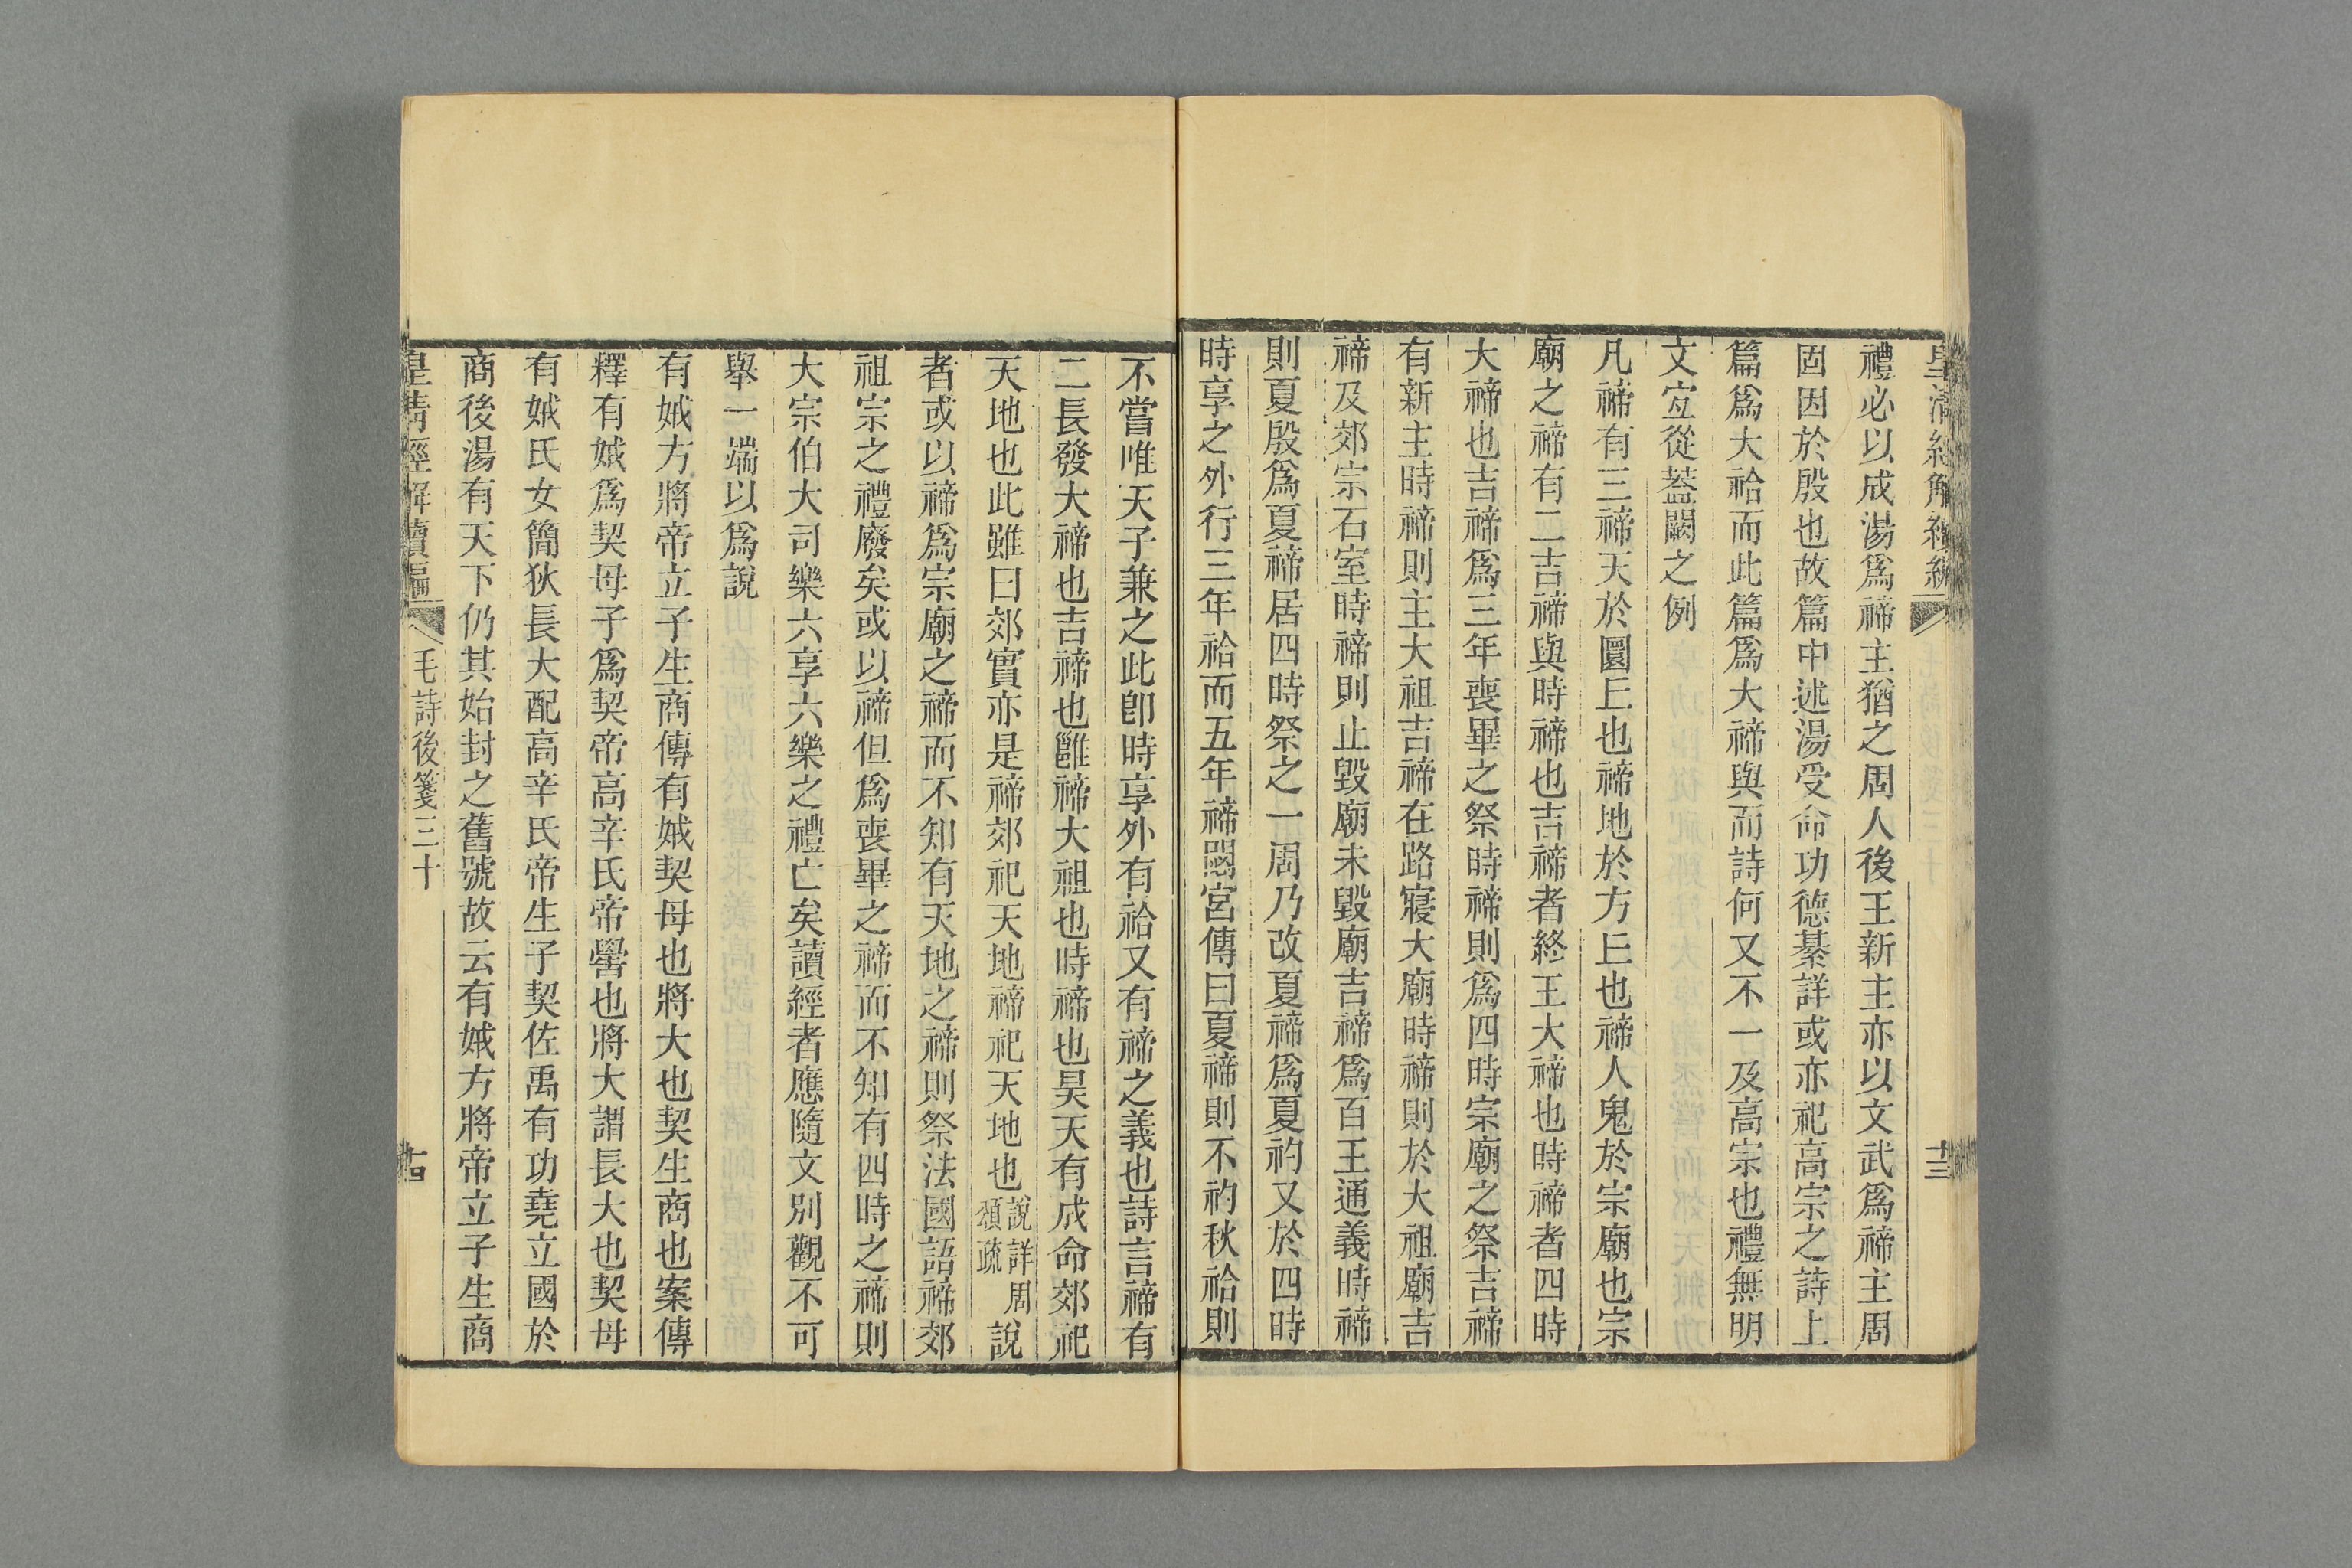 皇清經解續編
十三
禮必以成湯爲禘主猶之周人後王新主亦以文武爲禘主周
固因於殷也故篇中述湯受命功德綦詳或亦祀高宗之詩上
篇爲大祫而此篇爲大禘與而詩何又不一及高宗也禮無明
文宐從蓋闕之例
凡禘有三禘天於圜丘也禘地於方丘也禘人鬼於宗廟也宗
廟之禘有二吉禘與時禘也吉禘者終王大禘也時禘者四時
大禘也吉禘爲三年喪畢之祭時禘則爲四時宗廟之祭吉禘
有新主時禘則主大祖吉禘在路寢大廟時禘則於大祖廟吉
禘及郊宗石室時禘則止毀廟未毀廟吉禘爲百王通義時禘
則夏殷爲夏禘居四時祭之一周乃改夏禘爲夏礿又於四時
時享之外行三年祫而五年禘閟宮傳曰夏禘則不礿秋祫則
不嘗唯天子兼之此卽時享外有祫又有禘之義也詩言禘有
二長發大禘也吉禘也雝禘大祖也時禘也昊天有成命郊祀
天地也此雖曰郊實亦是禘郊祀天地禘祀天地也說詳周頌疏說
者或以禘爲宗廟之禘而不知有天地之禘則祭法國語禘郊
祖宗之禮廢矣或以禘但爲喪畢之禘而不知有四時之禘則
大宗伯大司樂六享六樂之禮亡矣讀經者應隨文別觀不可
舉一端以爲說
有娀方將帝立子生商傳有娀契母也將大也契生商也案傳
釋有娀爲契母子爲契帝高辛氏帝嚳也將大謂長大也契母
有娀氏女簡狄長大配高辛氏帝生子契佐禹有功堯立國於
商後湯有天下仍其始封之舊號故云有娀方將帝立子生商
皇清經解續編
毛詩後箋三十
十四